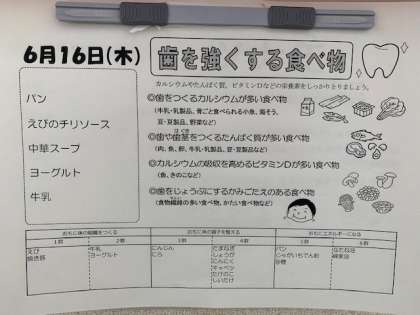 6月16日(木)
歯を強くする食べ物
カルシウムやたんぱく質、ビタミンDなどの栄養素をしっかりとりましょう。
パン
えびのチリソース
中華スープ
ヨーグルト
牛乳
◎歯をつくるカルシウムが多い食べ物
(牛乳・乳製品、骨ごと食べられる小魚、海そう、
豆・豆製品、野菜など)
◎歯や歯茎をつくるたんぱく質が多い食べ物
(肉、魚、卵、牛乳・乳製品、豆・豆製品など)
◎カルシウムの吸収を高めるビタミンDが多い食べ物
(魚、きのこなど)
◎歯をじょうぶにするかみごたえのある食べ物
(食物繊維の多い食べ物、かたい食べ物など)
おもに体の組織をつくる おもに体の調子を整える おもにエネルギーになる
1群 2群 3群 4群 5群 6群
えび 牛乳 にんじん たまねぎ パン なたね油
ヨーグルト にら しょうが じゃがいちでん粉
にんにく 砂糖
キャベツ
たけのこ
しいたけ